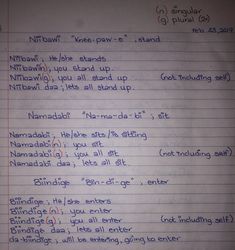 (n) singular
(g) plural (2+)
Feb. 23, 2017
Niibawi "Knee-paw-e", stand
Niibawi; He/she stands
Niibawi(n); you stand up.
Niibawi(g); you all stand up (not including self)
Niibawi daa; lets all stand up.
Namadabi "Na-ma-da-bi"; sit
Namadabi; He/she sits/is sitting
Namadabi(n); you sit
Namadabi(g); you all sit (not including self)
Namadabi daa; lets all sit.
Biindige "Bin-di-ge", enter
Biindige; He/she enters
Biindige(n); you enter
Biindige(g); you all enter (not including self)
Biindige daa; lets all enter
da-biindige; will be entering, going to enter